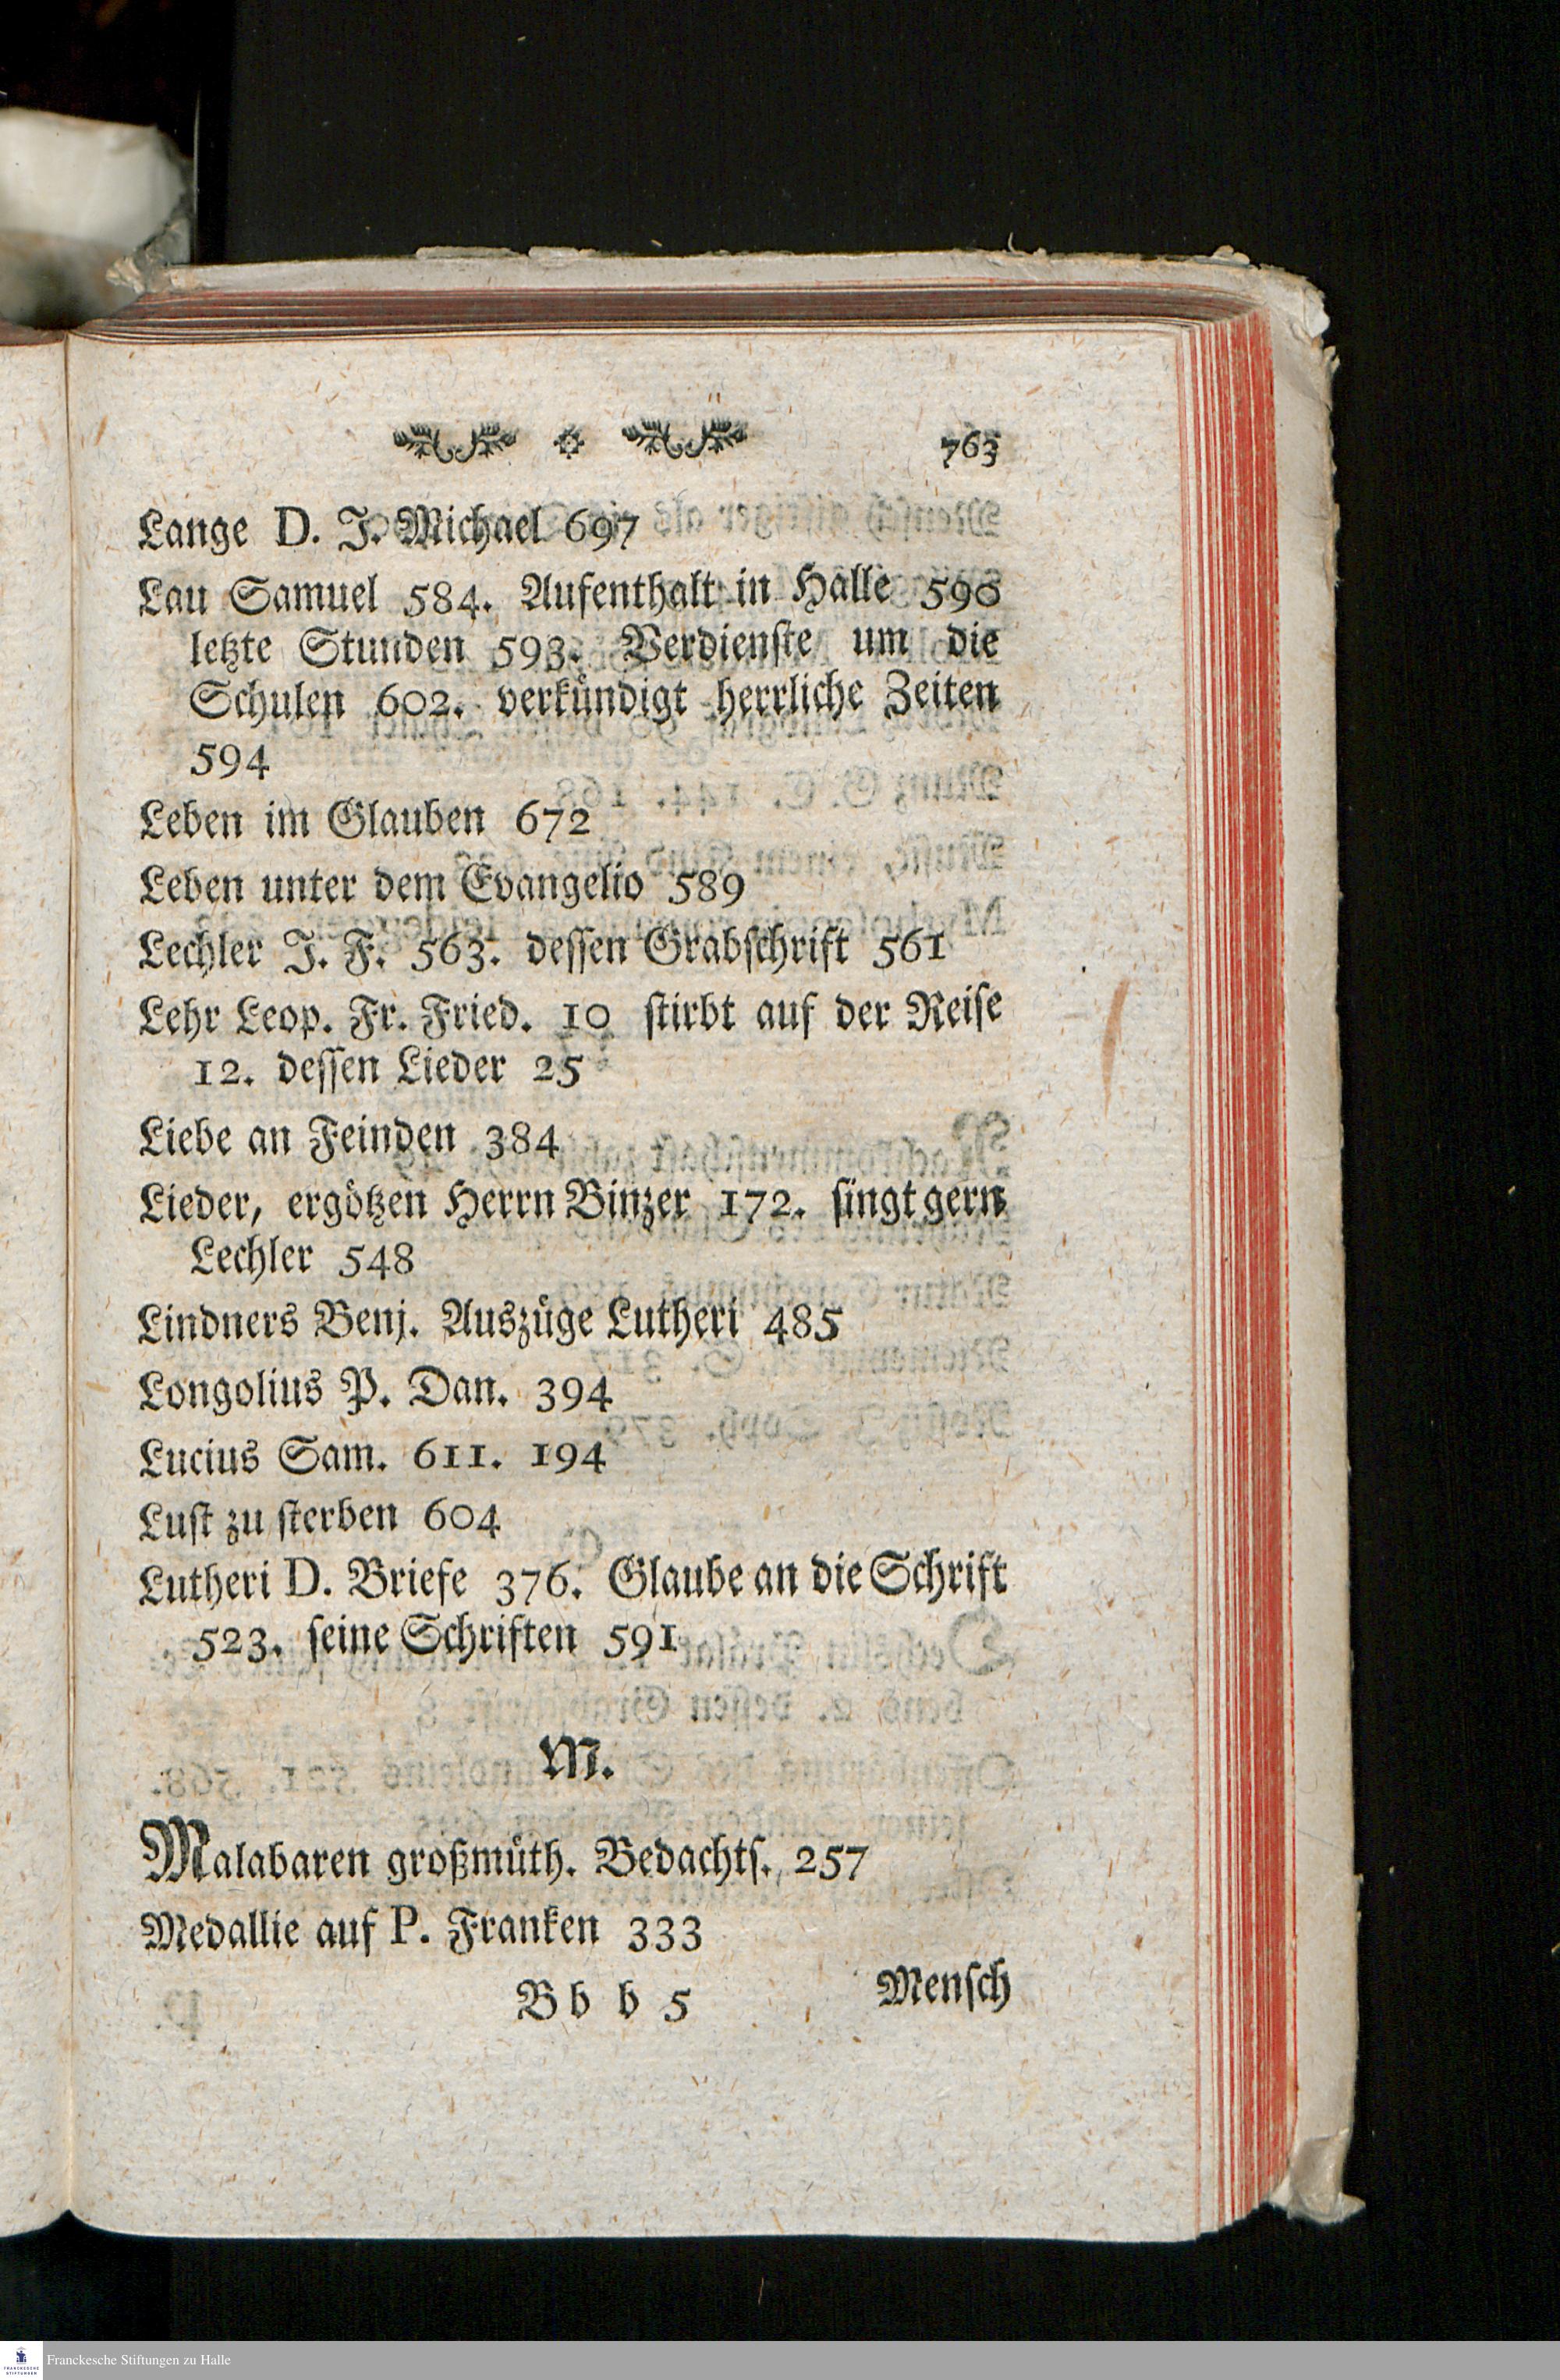 763
Lange D. J. Michael 697
Lau Samuel 584. Aufenthalt in Halle 590
letzte Stunden 593. Verdienſte um die
Schulen 602. verkündigt herrliche Zeiten
594
Leben im Glauben 672
Leben unter dem Evangelio 589
Lechler J. F. 563. deſſen Grabſchrift 561
Lehr Leop. Fr. Fried. 10 ſtirbt auf der Reiſe
12. deſſen Lieder 25
Liebe an Feinden 384
Lieder, ergötzen Herrn Binzer 172. ſingt gern
Lechler 548
Lindners Benj. Auszüge Lutheri 485
Longolius P. Dan. 394
Lucius Sam. 611. 194
Luſt zu ſterben 604
Lutheri D. Briefe 376. Glaube an die Schrift
523. ſeine Schriften 591
M.
Malabaren großmüth. Bedachtſ. 257
Medallie auf P. Franken 333
B b b 5 Menſch
Franckesche Stiftungen zu Halle
FRANCKESCHE
STIFTUNGEN